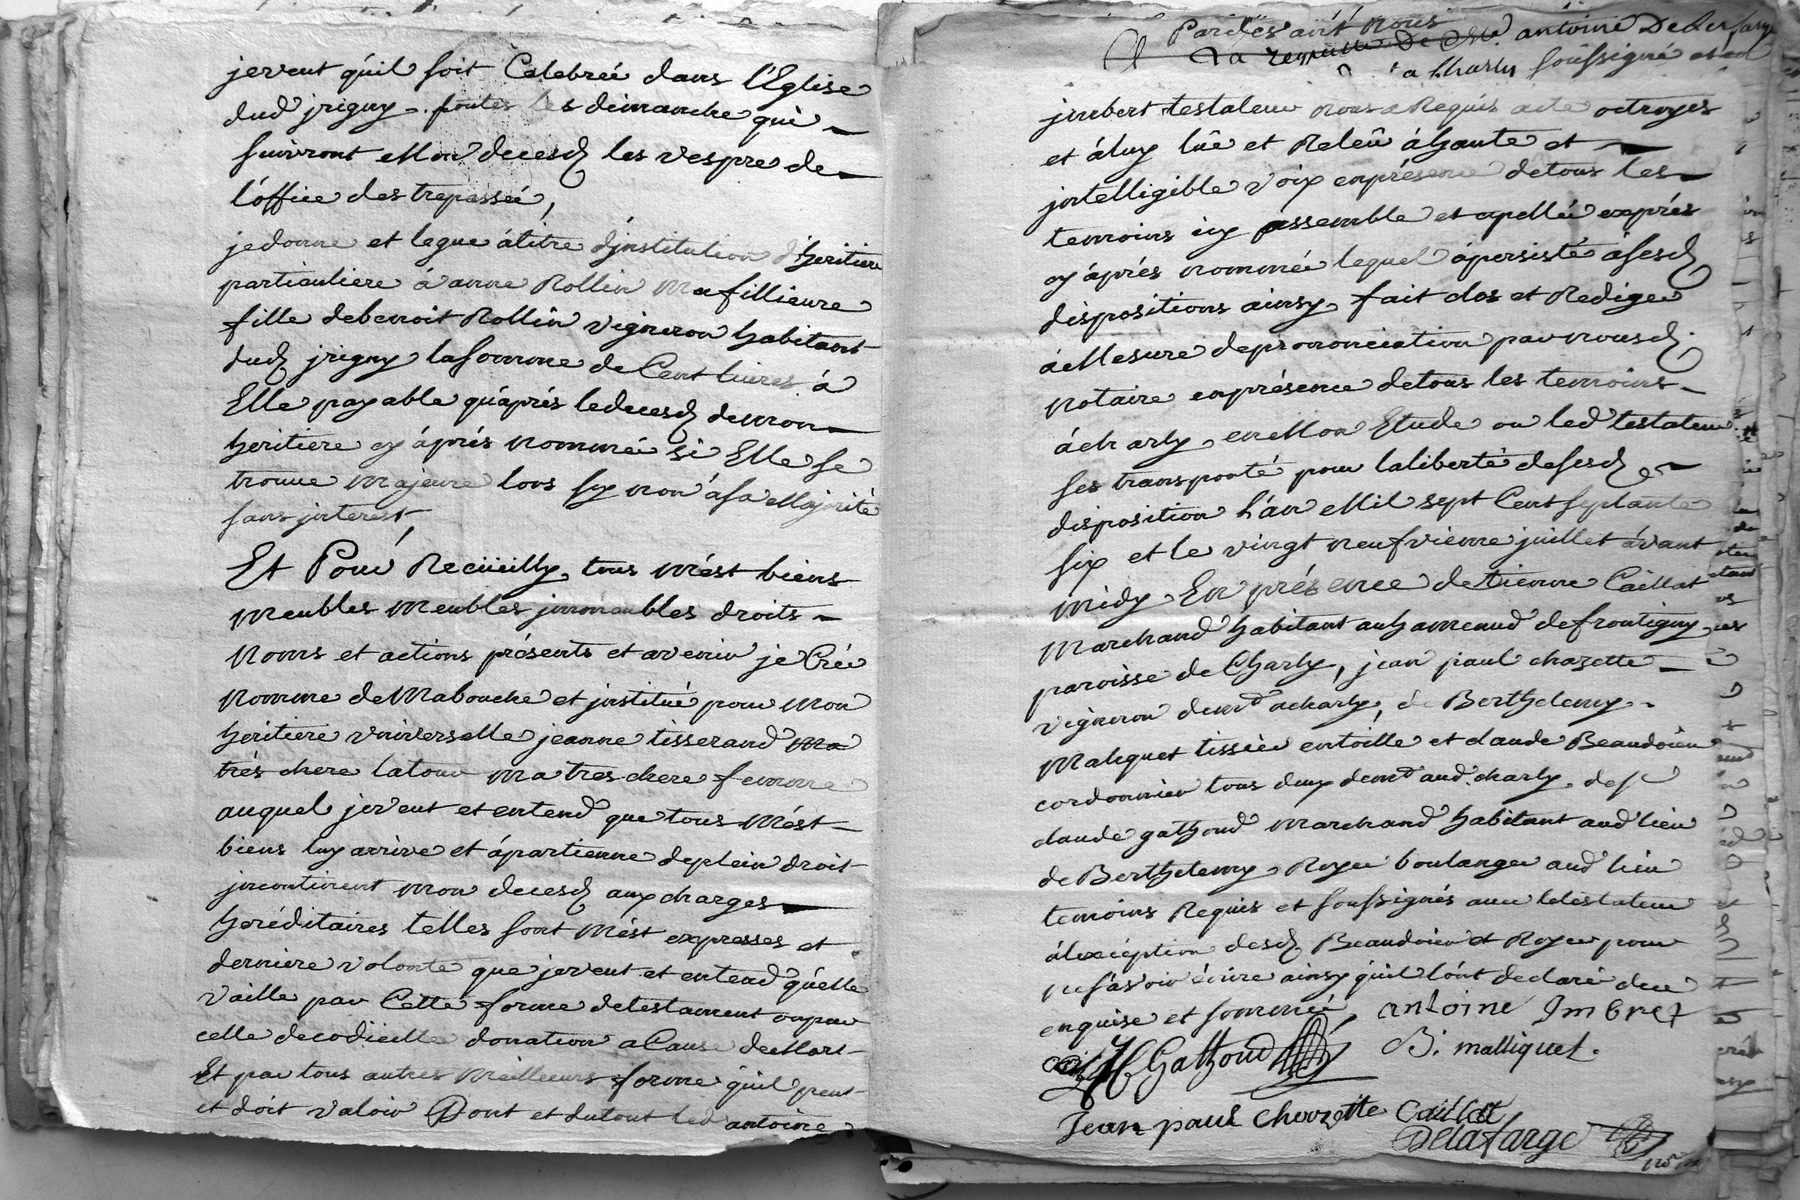 jeveut qúil soit Celebreé dans l'Eglise
dud jrigny. toutes les dimanche qui
suivront Mon decesd les vespre de
l'office des trepasseé,
jedonne et legue átitre d'jnstitution d'heritiere
particuliere á anne Rollin Mafillieure
fille debenoit Rollin vigneron habitant
dud jrigny lasomme de Cent livres á
Elle payable qúáprés ledecesd demon
heritiere cy áprés nommeé si Elle se
trouve Majeure lors sy non ása Majorité
sans jnterest
Et Pour Recüeilly tous mest biens
meubles meubles jmmeubles droits
Noms et actions présents et avenir je Crée
Nomme deMabouche et jnstitué pour Mon
heritiere vniverselle jeanne tisserand ma
trés chere latour ma tres chere femme
auquel jeveut et entend que tous Mést
biens luy arrive et ápartienne deplein droit
jncontinent mon decesd aux charges
heréditaires telles sont Mést expresses et
derniere volonté que jeveut et entend qúelle
vaille par Cette forme detestament oupar
celle decodicille donation aCause deMort
Et par tous autres Meilleurs forme qúil peut
et doit valoir Dont et dutout led antoine
Pardevant Nous
La requette de Me antoine Delafarge
a Charly soussigné et
jmbert testateur nous a Requis acte octroyes
et áluy lûe et Releû áhaute et
jntelligible voix enprésence detous les
temoins icy assemble et apelleé exprés
cy áprés nommeé lequel ápersisté ásesd
dispositions ainsy fait clos et Redigee
áMesure deprononciation par nousd
notaire enprésence detous les temoins
ácharly enMon Etude ou led testateur
ses transporté pour laliberté desesd
disposition l'án Mil sept Cent septante
six et le vingt neufvieme juillet ávant
midy En présence detienne Caillat
Marchand habitant auhameaud defrontigny
paroisse de Charly, jean paul chazette
vigneron demt acharly, de Berthelemy
Maliquet tissier entoille et claude Beaudoin
cordonnier tous deux demt aud charly de
claude gathoud Marchand habitant aud lieu
de Berthelemy Royer boulanger aud lieu
temoins Requis et soussignés avec letestateur
áléxception desd Beaudoin et Royer pour
nesávoir écrire ainsy qúil lónt declaré de
enquise et sommeé antoine Imbret
C Gathoud B. malliquet.
Jean paul Chozette Caillat
Delafarge